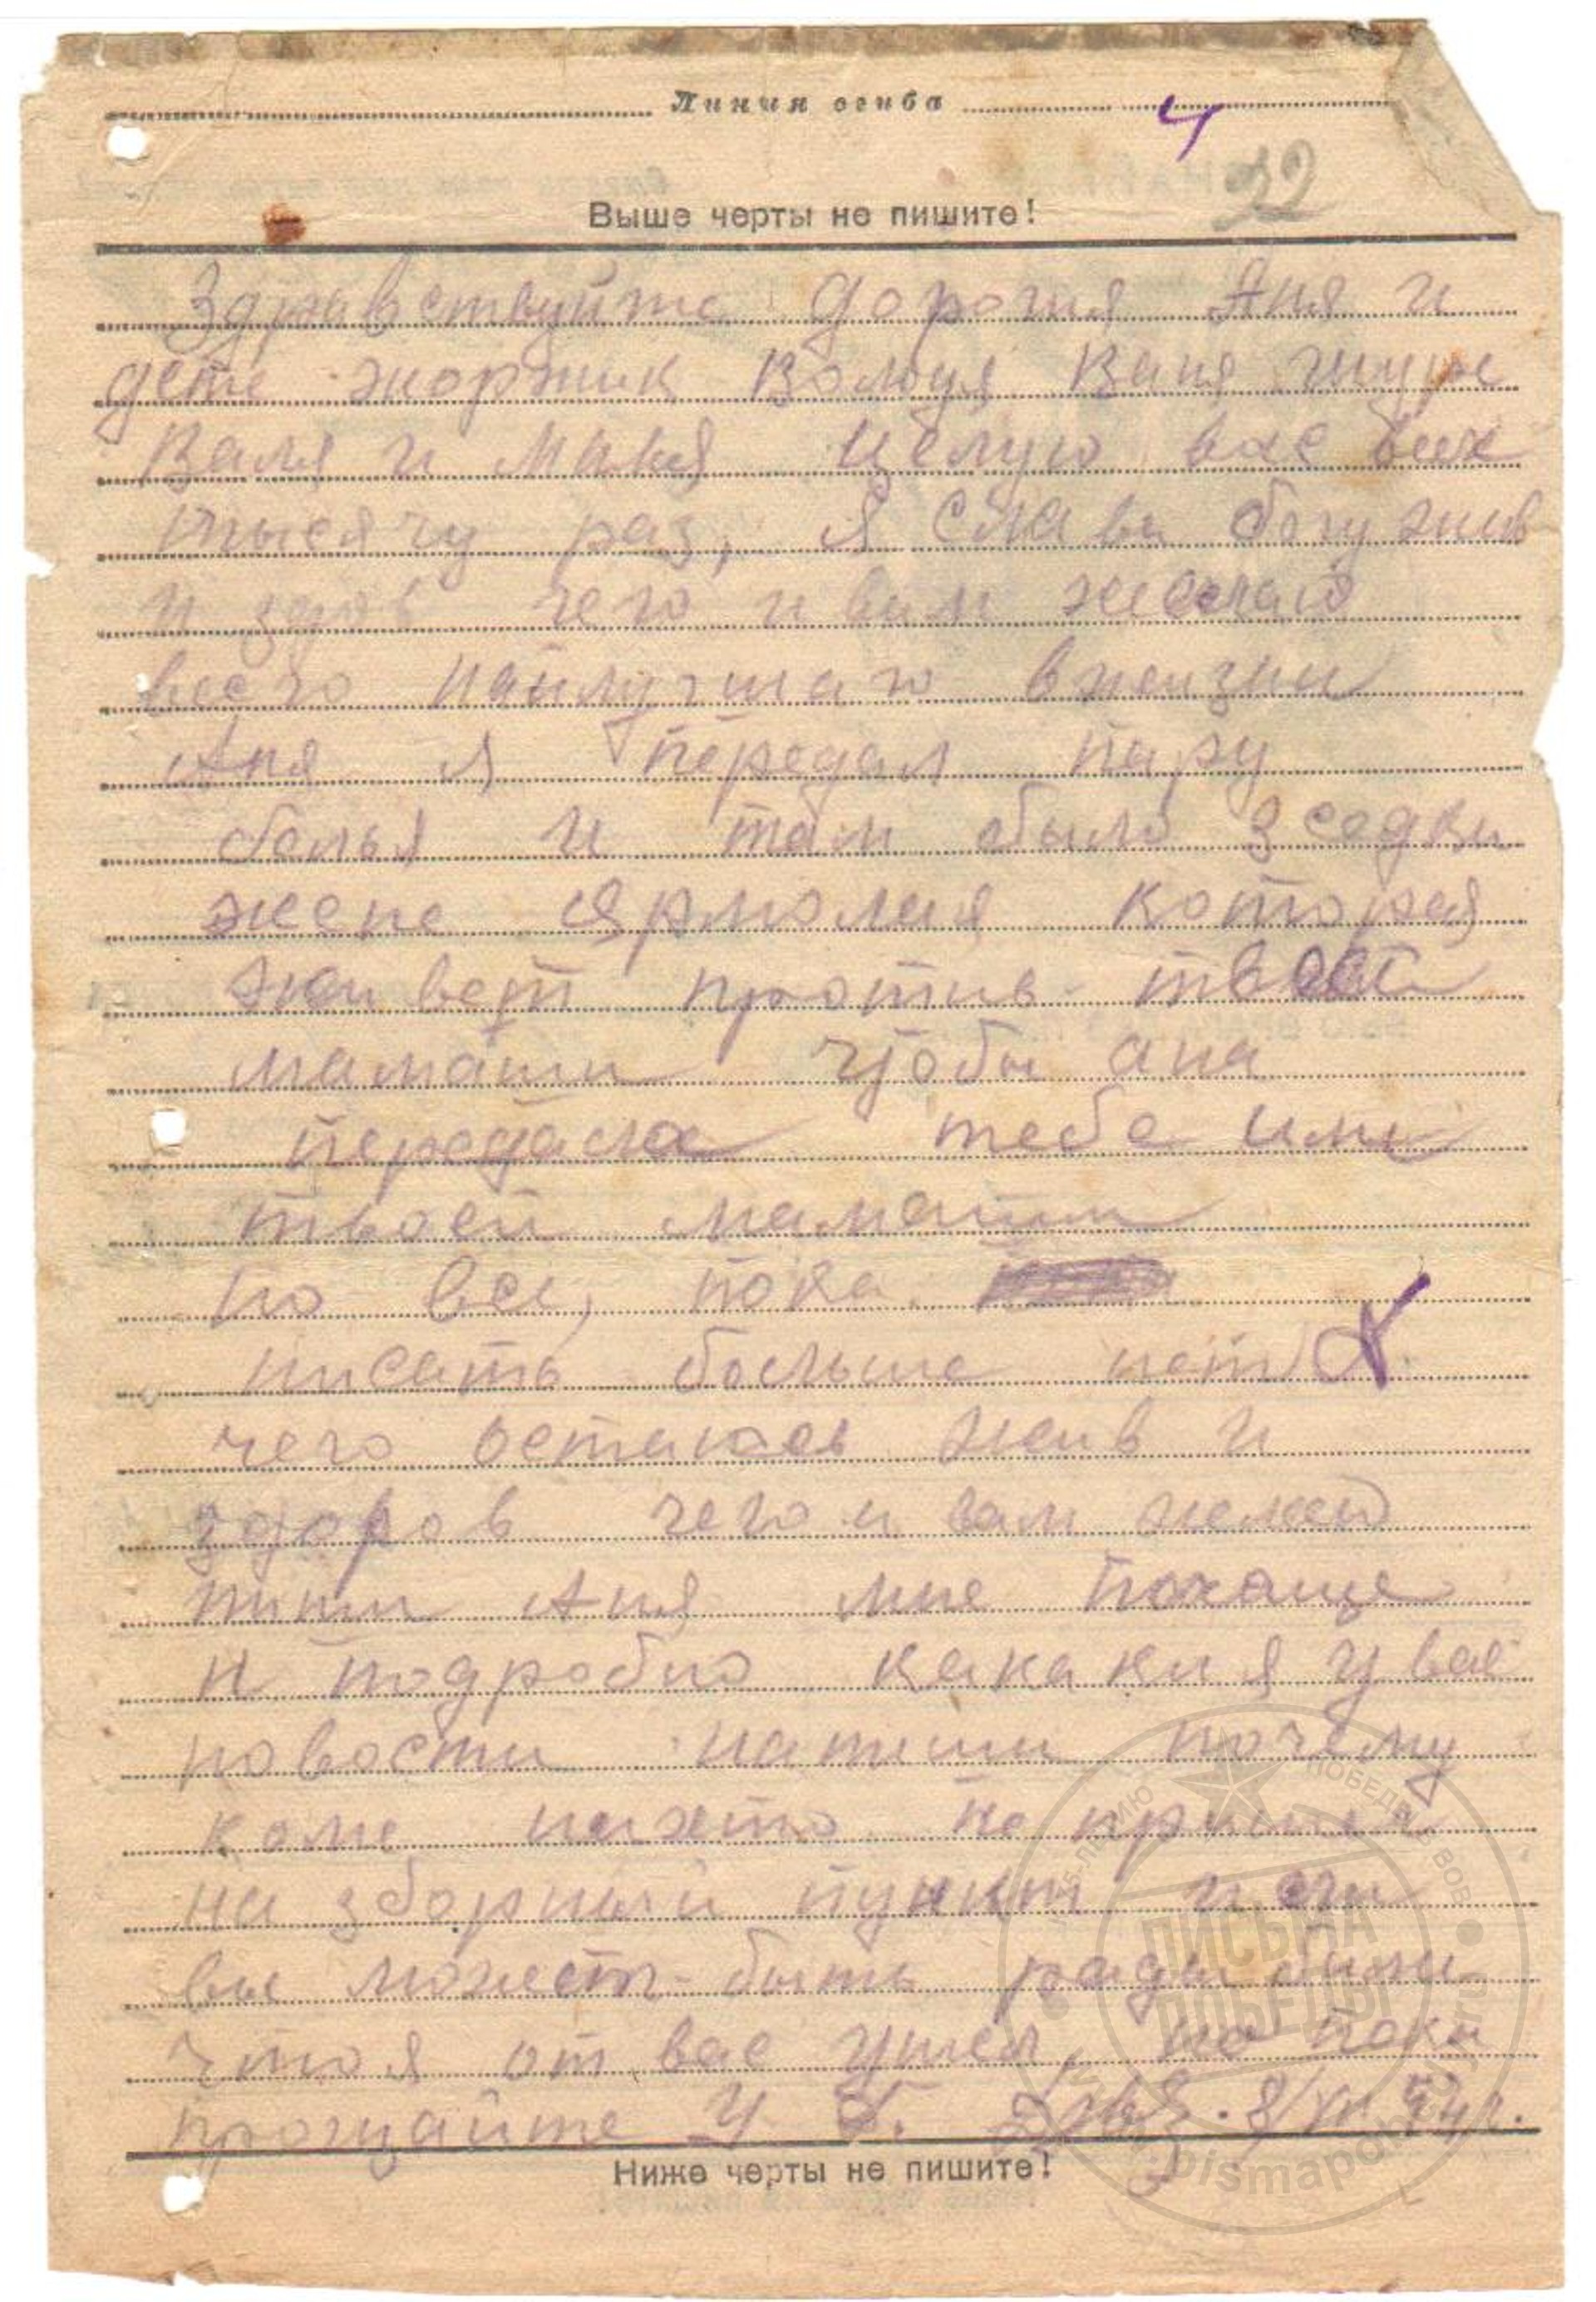 Линия сгиба
4
32
Выше черты не пишите!
Здравствуйте дорогия Аня и
дети жоржик Володя Ваня
Валя и Маня целую вас всех
тысячу раз, я слава богу жив
и здоб чего и вам желаю
всего найлучшаго вжизни
Аня я передал пару
белья и там было
жене ярмолая которая
живет против твоей
мамаши чтобы ана
передала тебе или
твоей мамаши
но все, пока
писать больше нет
чего остаюсь жив и
здоров чего и вам желаю
пиши Аня мне почаще
и подробно кака кия у вас
новости напиши почему
коме нихто не пришел
на зборный пункт
вы может быть рады были
что я от вас ушел, но пока
прощайте
Ниже черты не пишите!
ПИСЬМА
ПОБЕДЫ